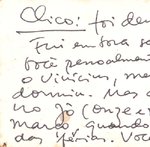 Clico: foi den
Fui embora so
você pessoalmen
o Vinícius, me
dormiu. Mas o
no Jô (onze e
março quando
das férias. Voc